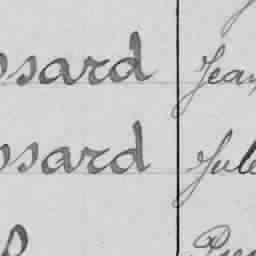 ssard Jean
ssard Jule